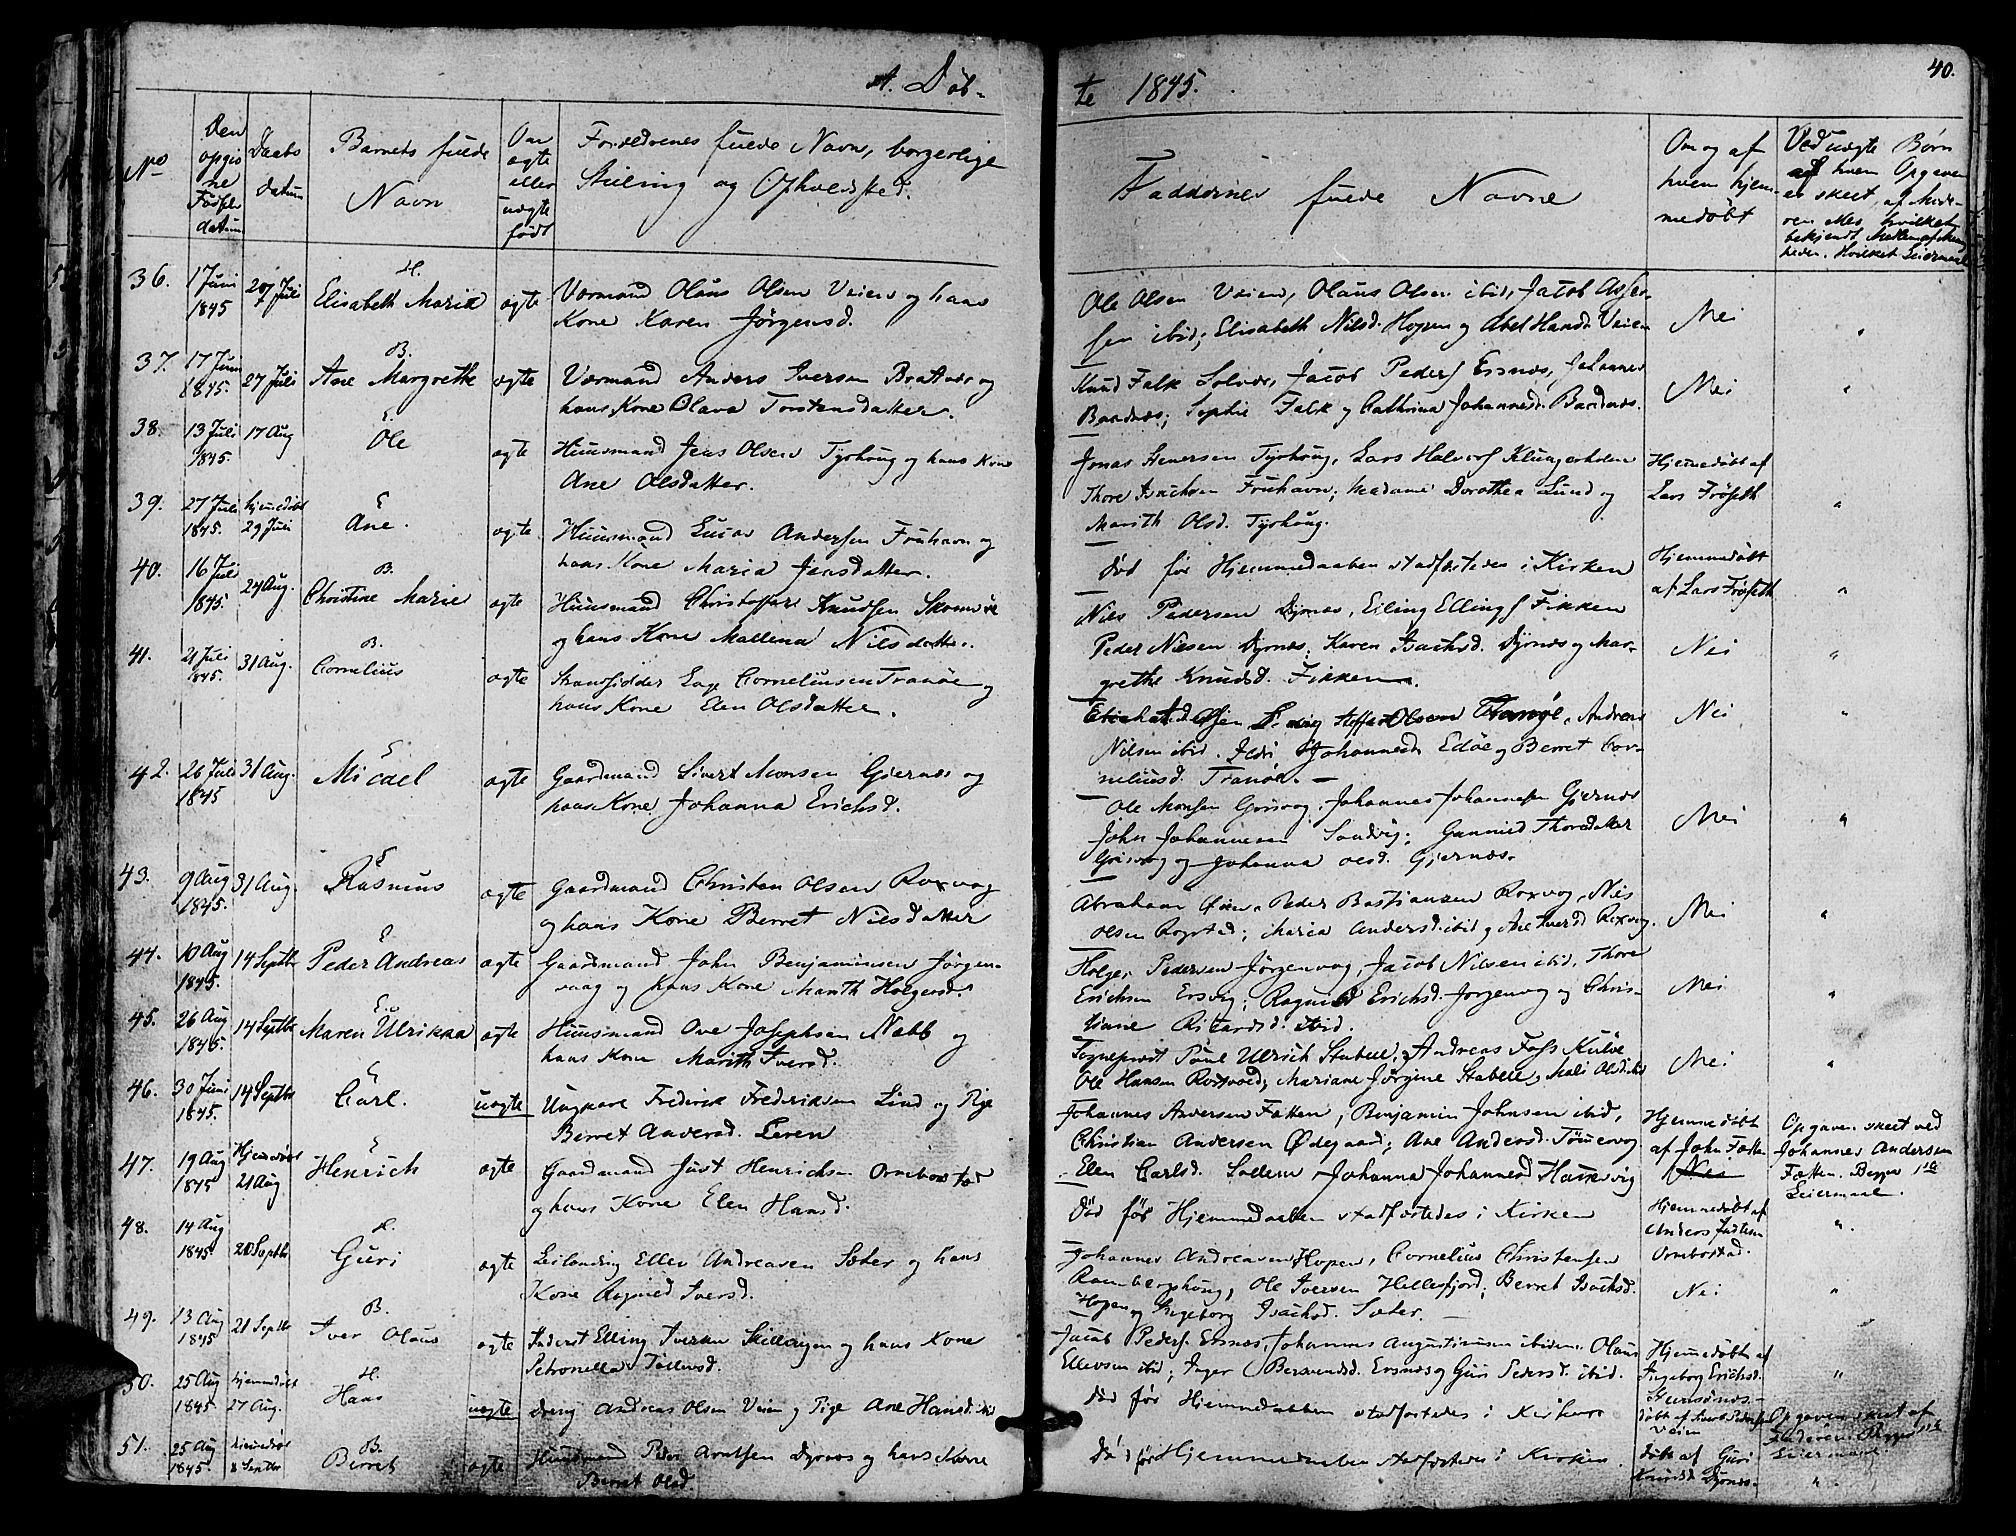 A. Døb-
te 1845.
40.
No
Den opgivne Fødselsdatum
Daabsdatum
Barnets fulde Navn
Om ægte eller uægte født
Forældrenes fulde Navn, borgerlige
Stilling og Opholdsted.
Faddernes fulde Navne
Om og af
hvem hjem-
medøbt
Ved uægte Børn
af hvem Opgaven
er skeet, af Mode-
ren eller hvilket
bekjendt Medlem af Menig
heden. Hvilket Leiermaal
36. 1 Juni 1845 27 Juli H. Elisabeth Marie ægte
Vaermand Olaus Olsen Veien og hans
Kone Karen Jørgensd.
Ole Olsen Veien, Olaus Olsen ibid, Jacob Asser-
sen ibid; Elisabeth Nilsd. Hopen og Abel Hansd. Veien
Nei "
37. 17 Juni 1845. 27 Juli B. Ane Margrethe ægte
Vaermand Anders Iversen Bratvær og
hans Kone Olava Torstensdatter.
Knud Falk Solvær, Jacob Peders Ersnæs, Johannes
Bardnæs; Sophie Falk og Cathrina Johannesd. Bardnæs.
Nei "
38. 13 Juli 1845. 17 Aug E. Ole ægte
Huusmand Jens Olsen Tyrhoug og hans Kone
Ane Olsdatter.
Jonas Stenersen Tyrhoug, Lars Halvors Klungerholm
Thore Isachsen Fruhavn; Madame Dorothea Lund og
Marith Olsd. Tyrhoug.
Hjemedøbt af
Lars Frøseth "
39. 27 Juli 1845. hjemedøbt 29 Juli E Ane. ægte
Huusmand Lucas Andersen Fruhavn og
hans Kone Maria Jensdatter.
død før Hjemmedaaben stadfæstedes i Kirken
Hjemmedøbt
af Lars Frøseth "
40. 16 Juli 1845. 24 Aug. B. Christine Marie ægte
Huusmand Christoffer Knudsen
og hans Kone Mallena Nilsdatter.
Nils Pedersen Dyrnæs, Elling Ellings Fikken
Peder Nielsen Dyrnæs; Karen Isachsd. Dyrnæs og Mar-
grethe Knudsd. Fikken.
Nei "
41. 21 Juli 1845. 31 Aug. B. Cornelius ægte
Strandsidder Lage Corneliusen Tranøe og
hans Kone Elen Olsdatter.
Olsen Tranøe, Andreas
Nilsen ibid. Johannesd. Edøe og Berret Cor-
neliusd. Tranøe. —
Nei "
42. 26 Juli 1845 31 Aug. E Micael ægte
Gaardmand Sivert Monsen Gjernæs og
hans Kone Johanna Erichsd.
Ole Monsen Grisvog, Johannes Johannesen Gjernæs
John Johannesen Sandvig; Gunnild Thoresdatter
Grisvog og Johanna Olsd. Gjernæs.
Nei "
43. 9 Aug 1845. 31 Aug. E Rasmus ægte
Gaardmand Christen Olsen Roxvog
og hans Kone Berret Nilsdatter
Abraham Peder Bastiansen Roxvog, Nils
Olsen Rogstad; Maria Andersd. ibid og Ane Iversd Roxvog.
Nei "
44. 10 Aug 1845. 14 Septbr E Peder Andreas ægte
Gaardmand John Benjaminsen Jørgen-
vaag og hans Kone Marith Holgersd.
Holger Pedersen Jørgenvog, Jacob Nilsen ibid, Thore
Erichsen Ersvig; Ragnild Erichsd. Jørgenvog og Chris-
tiane Ricardsd. ibid.
Nei "
45. 26 Aug 1845. 14 Septbr E Maren Ulrikka ægte
Huusmand Ove Josephsen Nabb og
hans Kone Marith Iversd.
Sogneprest Poul Ulrich Stabell, Andreas Foss Kulve
Ole Hansen Roxvoed; Mariane Jørgine Stabell, Mali Olsd ibid
Nei "
46. 30 Juni 1845. 14 Septbr E Carl. uægte
Ungkarl Frederik Frederiksen Lind og Pige
Berret Andersd. Leren
Johannes Andersen Fætten, Benjamin Johnsen ibid,
Christian Andersen Ødegaard; Ane Andersd. Tømmervog
Elen Carlsd. Sollem, Johanna Johannesd Haukvig
Hjemmedøbt
af John Fætten
Nei
Opgaven skeet ved
Johannes Andersen
Fætten. Begges 1ste
Leiermaal.
47. 19 Aug 1845 Hjemedøbt 21 Aug E Henrich ægte
Gaardmand Just Henrichsen Ornibostad
og hans Kone Elen Hansd.
død før Hjemmedaaben stadfæstedes i Kirken
Hjemmedøbt af
Anders Justsen
Ornibostad. ".
48. 14 Aug 1845. 21 Septbr H. Guri ægte
Leilending Ellev Andreasen Sæter og hans
Kone Ragnild Iversd.
Johannes Andreasen Hopen, Cornelius Christensen
Ramberghoug, Ole Iversen Hellesfjord; Berret Isachsd.
Hopen og Ingeborg Isachsd. Sæter. —
Nei "
49. 13 Aug 1845 21 Septbr B. Iver Olaus ægte
Inderst Elling Iversen Skillagen og hans Kone
Petronella Tollevsd.
Jacob Peders. Ersnæs, Johannes Augustinusen ibidem. Olaus
Ellevsen ibid; Inger Berentsd. Ersnæs og Guri Pedersd. ibid.
Hjemmedøbt af
Ingeborg Erichsd.
"
50. 25 Aug 1845 hjemmedøbt 27 Aug. H. Hans uægte
Dreng Andreas Olsen Veien og Pige Ane Hansd. ibid
død før Hjemmedaaben stadfæstedes i Kirken
døbt af
Veien
Opgaven skeet af
Faderen. Begges 1ste
Leiermaal.
51. 25 Aug 1845. hjemedøbt 8 Septbr B. Berret ægte
Huusmand Peder Arntsen Dyrnæs og hans Kone
Berret Olsd.
Død før Hjemmedaaben stadfæstedes i Kirken.
døbt af Guri
Knudsd. Dyrnæs. "